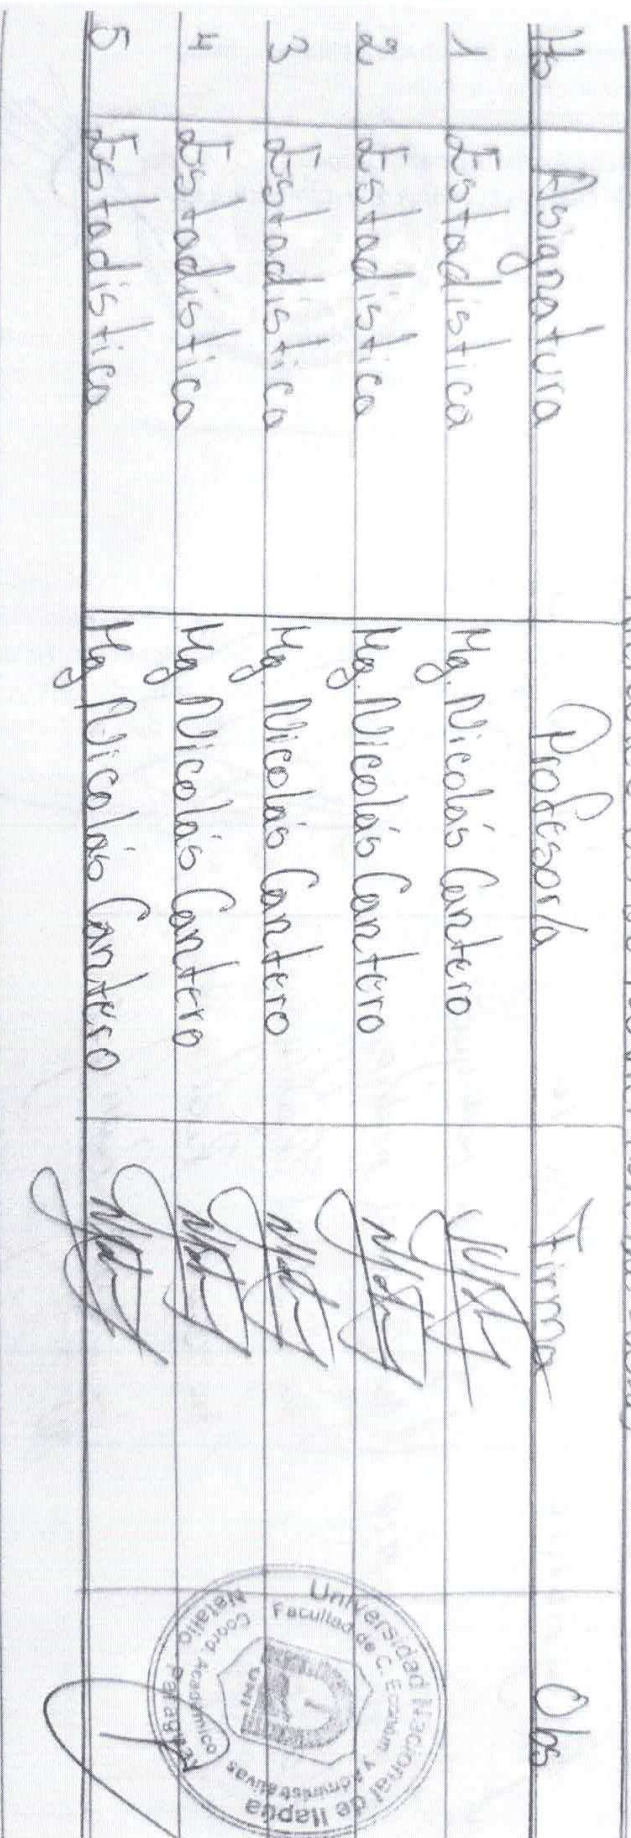 Hs Asignatura Profesor/a Firma Obs
1 Estadistica Mg. Nicolás Cantero
2 Estadistica Mg. Nicolás Cantero
3 Estadistica Mg Nicolás Cantero
4 Estadistica Mg Nicolás Cantero
5 Estadistica Mg Nicolás Cantero
Universidad Nacional de Itapúa
Facultad de C. Econom. y Administrativas
UNI
Coord. Académico
Natalio